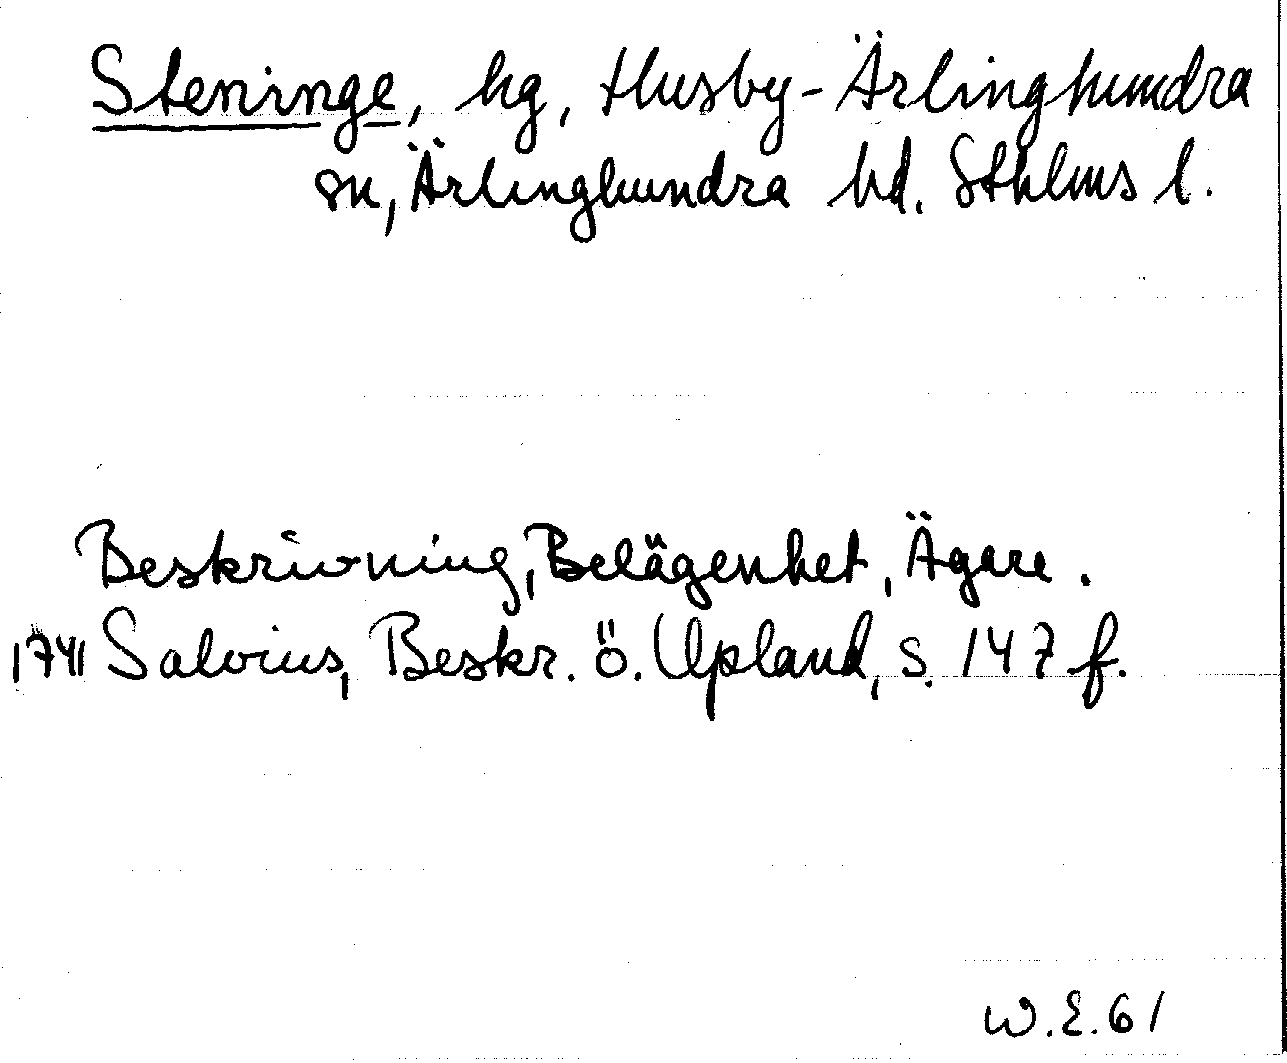 Steninge, hg, Husby-Ärlinghundra
sn, Ärlinghundra hd. Sthlms l.
Beskrivning, Belägenhet, Ägare.
1741 Salvius, Beskr. ö. Upland, s. 147 f.
W.E.61